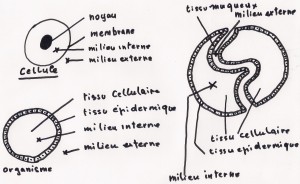 noyau
membrane
milieu interne
milieu externe
Cellule
tissu cellulaire
tissu épidermique
milieu interne
milieu externe
organisme
tissu muqueux
milieu externe
tissu cellulaire
tissu épidermique
milieu interne